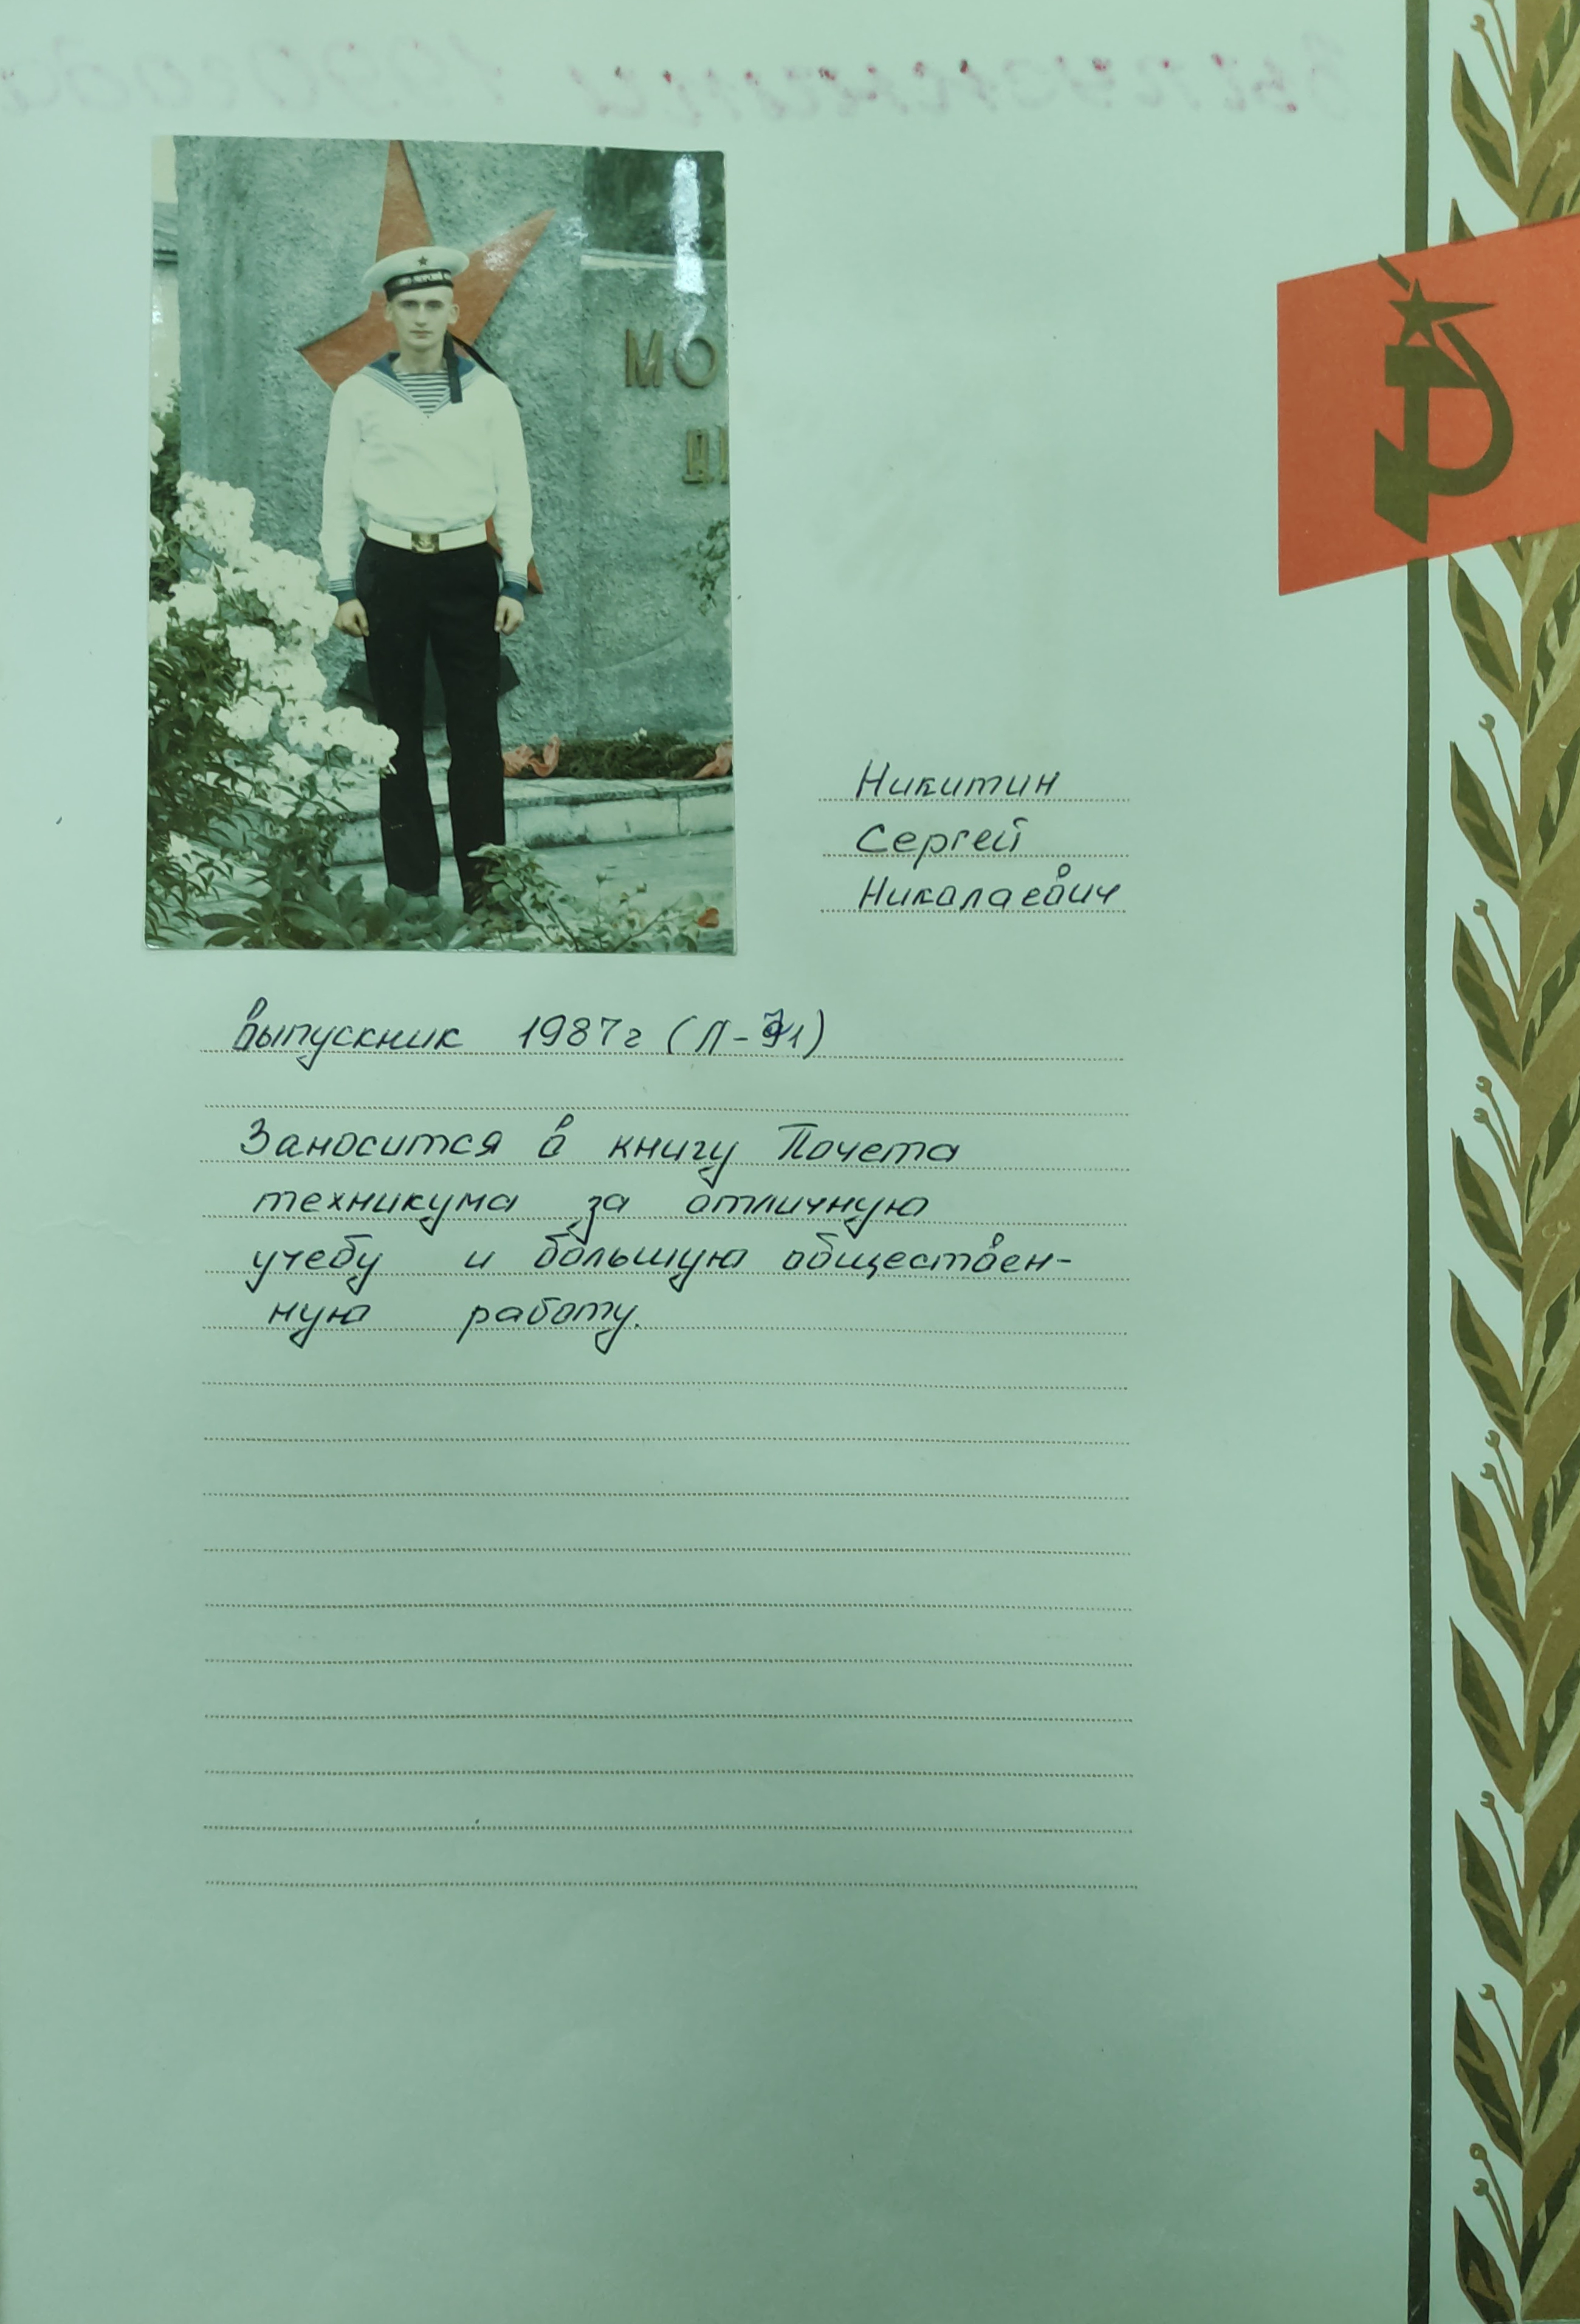 МО
Никитин
Сергей
Николаевич
Выпускник 1987г (Л-
Заносится в книгу Почета
техникума за отличную
учебу и большую обществен-
ную работу.